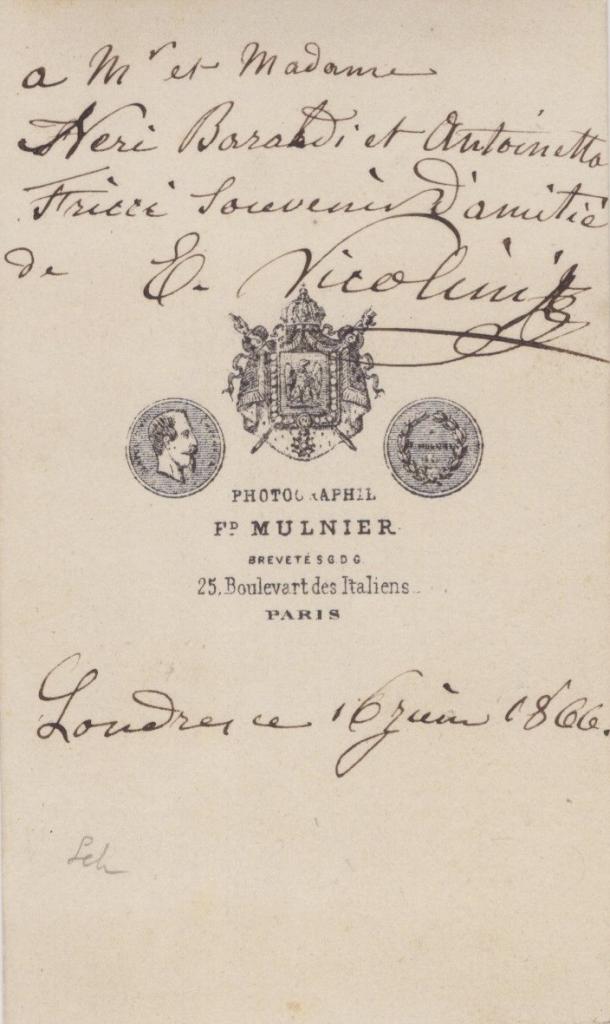 a Mr et Madame
Neri Baraldi et Antoinetta
Fricci Souvenir D'amitié
de E. Nicolini
PHOTOGRAPHIE
FD MULNIER
BREVETÉ S.G.D.G.
25, Boulevart des Italiens
PARIS
Londres ce 16 juin 1866.